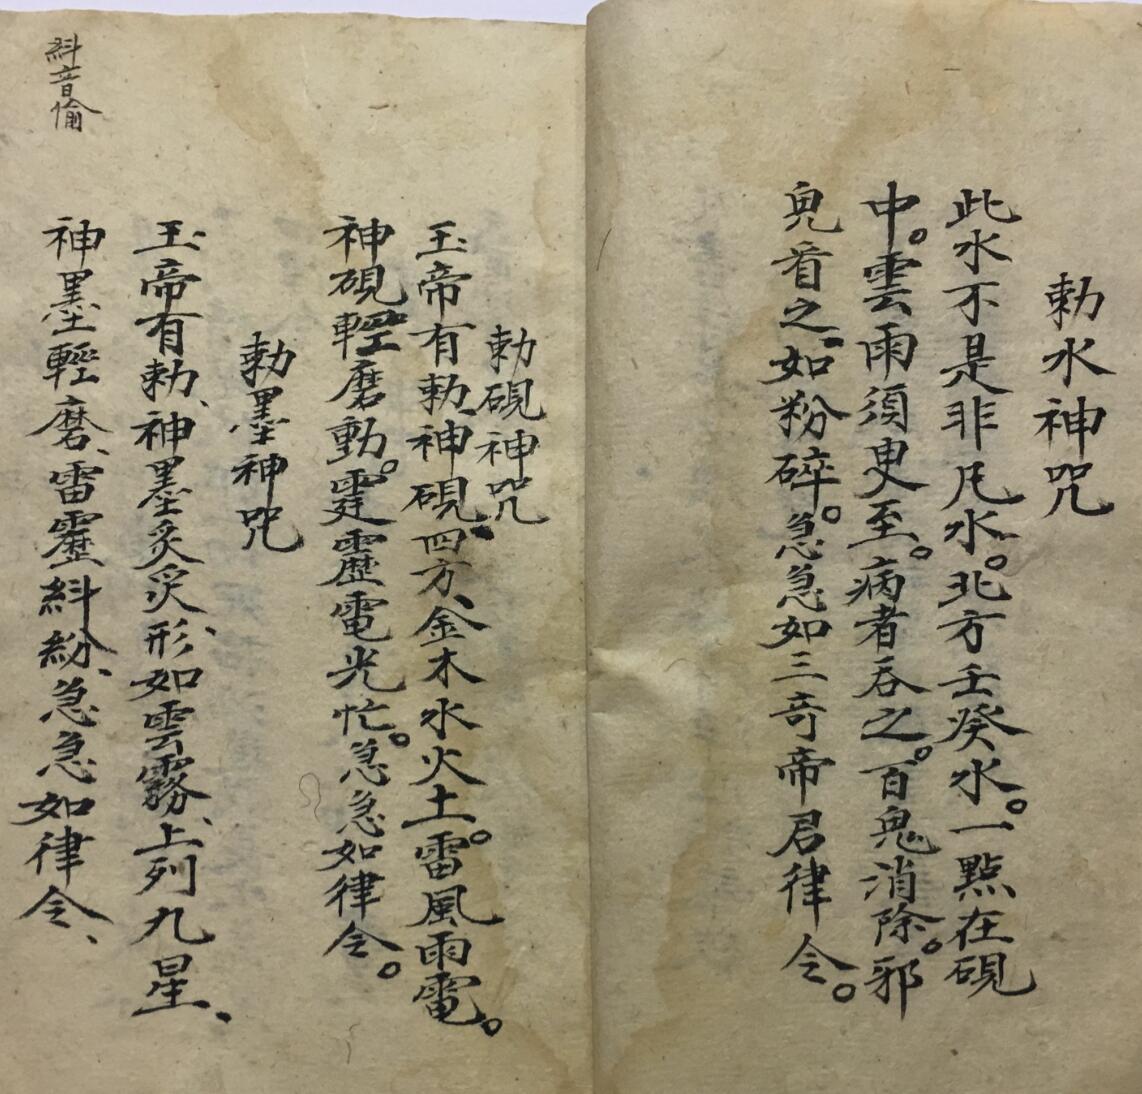 勅水神咒
此水不是非凡水。北方壬癸水。一點在硯
中。雲雨須臾至。病者吞之。百鬼消除。邪
鬼看之、如粉碎。急急如三奇帝君律令。
勅硯神咒
玉帝有勅、神硯、四方、金木水火土。雷風雨電。
神硯輕磨動。霆靂電光忙。急急如律令。
勅墨神咒
玉帝有勅、神墨炙炙、形如雲霧、上列九星、
神墨輕磨、雷靂糾紛、急急如律令、
糾音偷